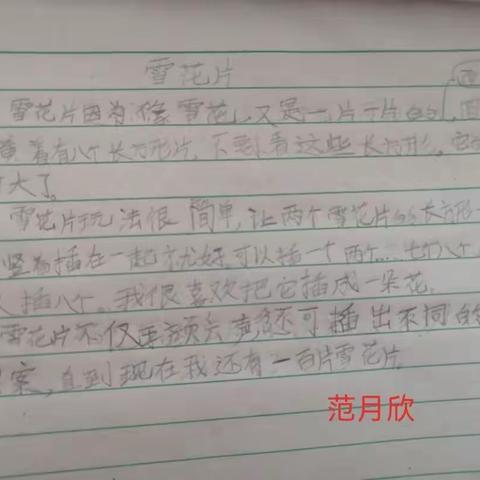 雪花片
雪花片因为像雪花,又是一片一片的,
着有八个长方形片,不要小看这些长方形,它
大了。
雪花片玩法很简单,让两个雪花片的长方形一
竖插在一起就好,可以插一个两个…七个八个
插八个。我很喜欢把它插成一朵花。
雪花片不仅 还可插出不同的
案,直到现在我还有一百片雪花片。
范月欣